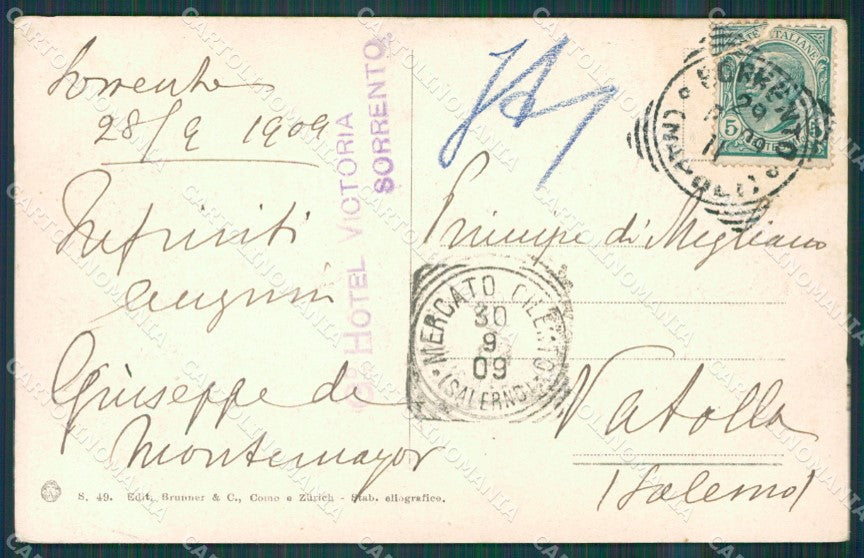 Sorrento
28/9 1909
Infiniti
auguri
Giuseppe de
Montemayor
Gd HOTEL VICTORIA
SORRENTO
POSTE ITALIANE
5
SORRENTO
29
09
11
(NAPOLI)
Principe di Migliano
MERCATO CILENTO
30
9
09
(SALERNO)
Vatolla
(Salerno)
S. 49. Edit. Brunner & C., Como e Zürich - Stab. eliografico.
CARTOLINOMANIA